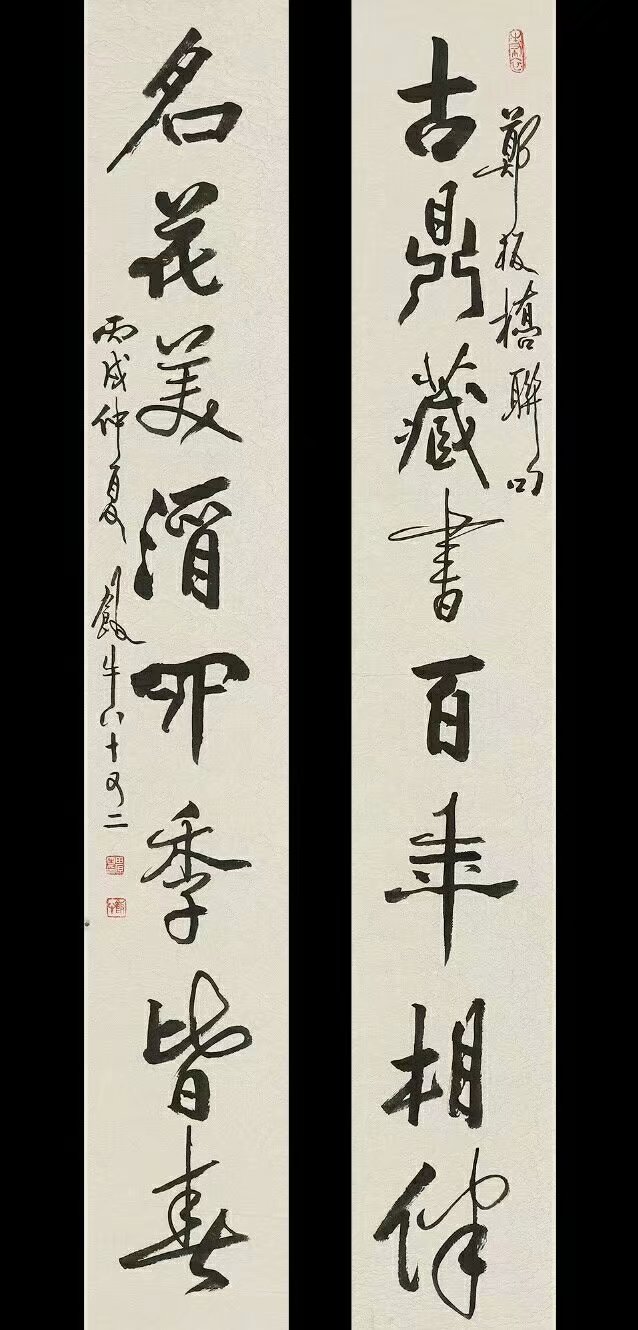 鄭板橋聯句
古鼎藏書百年相伴
名花美酒四季皆春
丙戌仲夏 牛八十又二